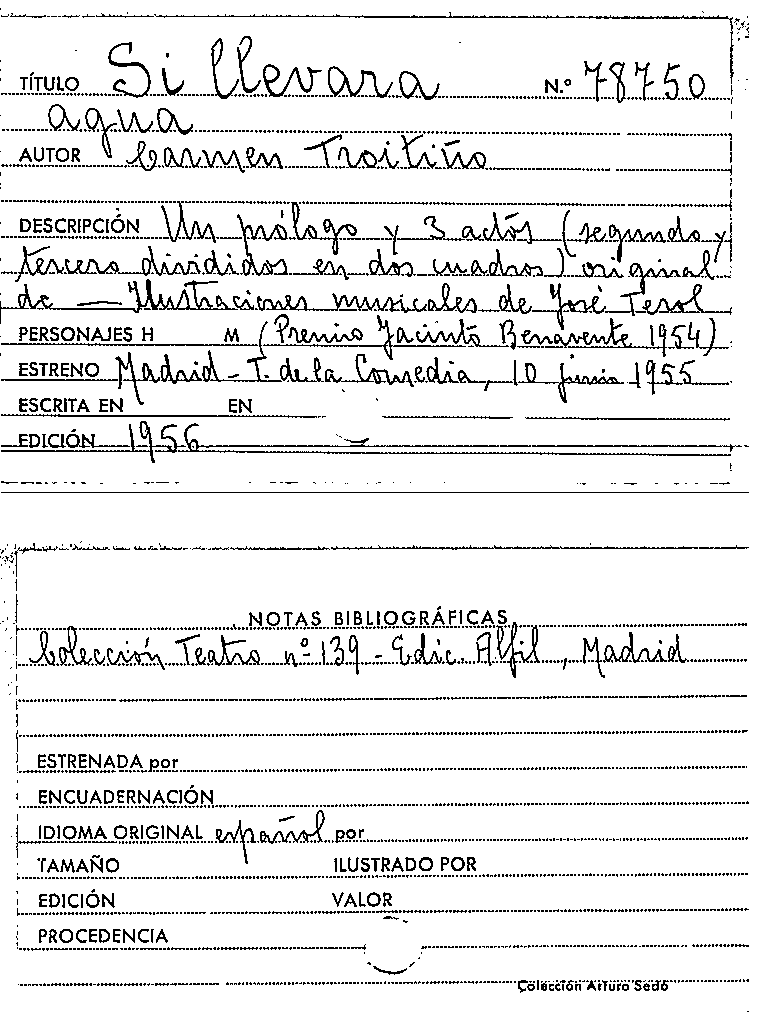 TÍTULO Si llevara N.º 78750
agua
AUTOR Carmen Troitiño
DESCRIPCIÓN Un prólogo y 3 actos (segundo y
tercero divididos en dos cuadros) original
de — Ilustraciones musicales de José Terol
PERSONAJES H M (Premio Jacinto Benavente 1954)
ESTRENO Madrid - T. de la Comedia, 10 junio 1955
ESCRITA EN EN
EDICIÓN 1956
NOTAS BIBLIOGRÁFICAS
Colección Teatro nº 139 - Edic. Alfil, Madrid
ESTRENADA por
ENCUADERNACIÓN
IDIOMA ORIGINAL español por
TAMAÑO ILUSTRADO POR
EDICIÓN VALOR
PROCEDENCIA
Colección Arturo Sedó